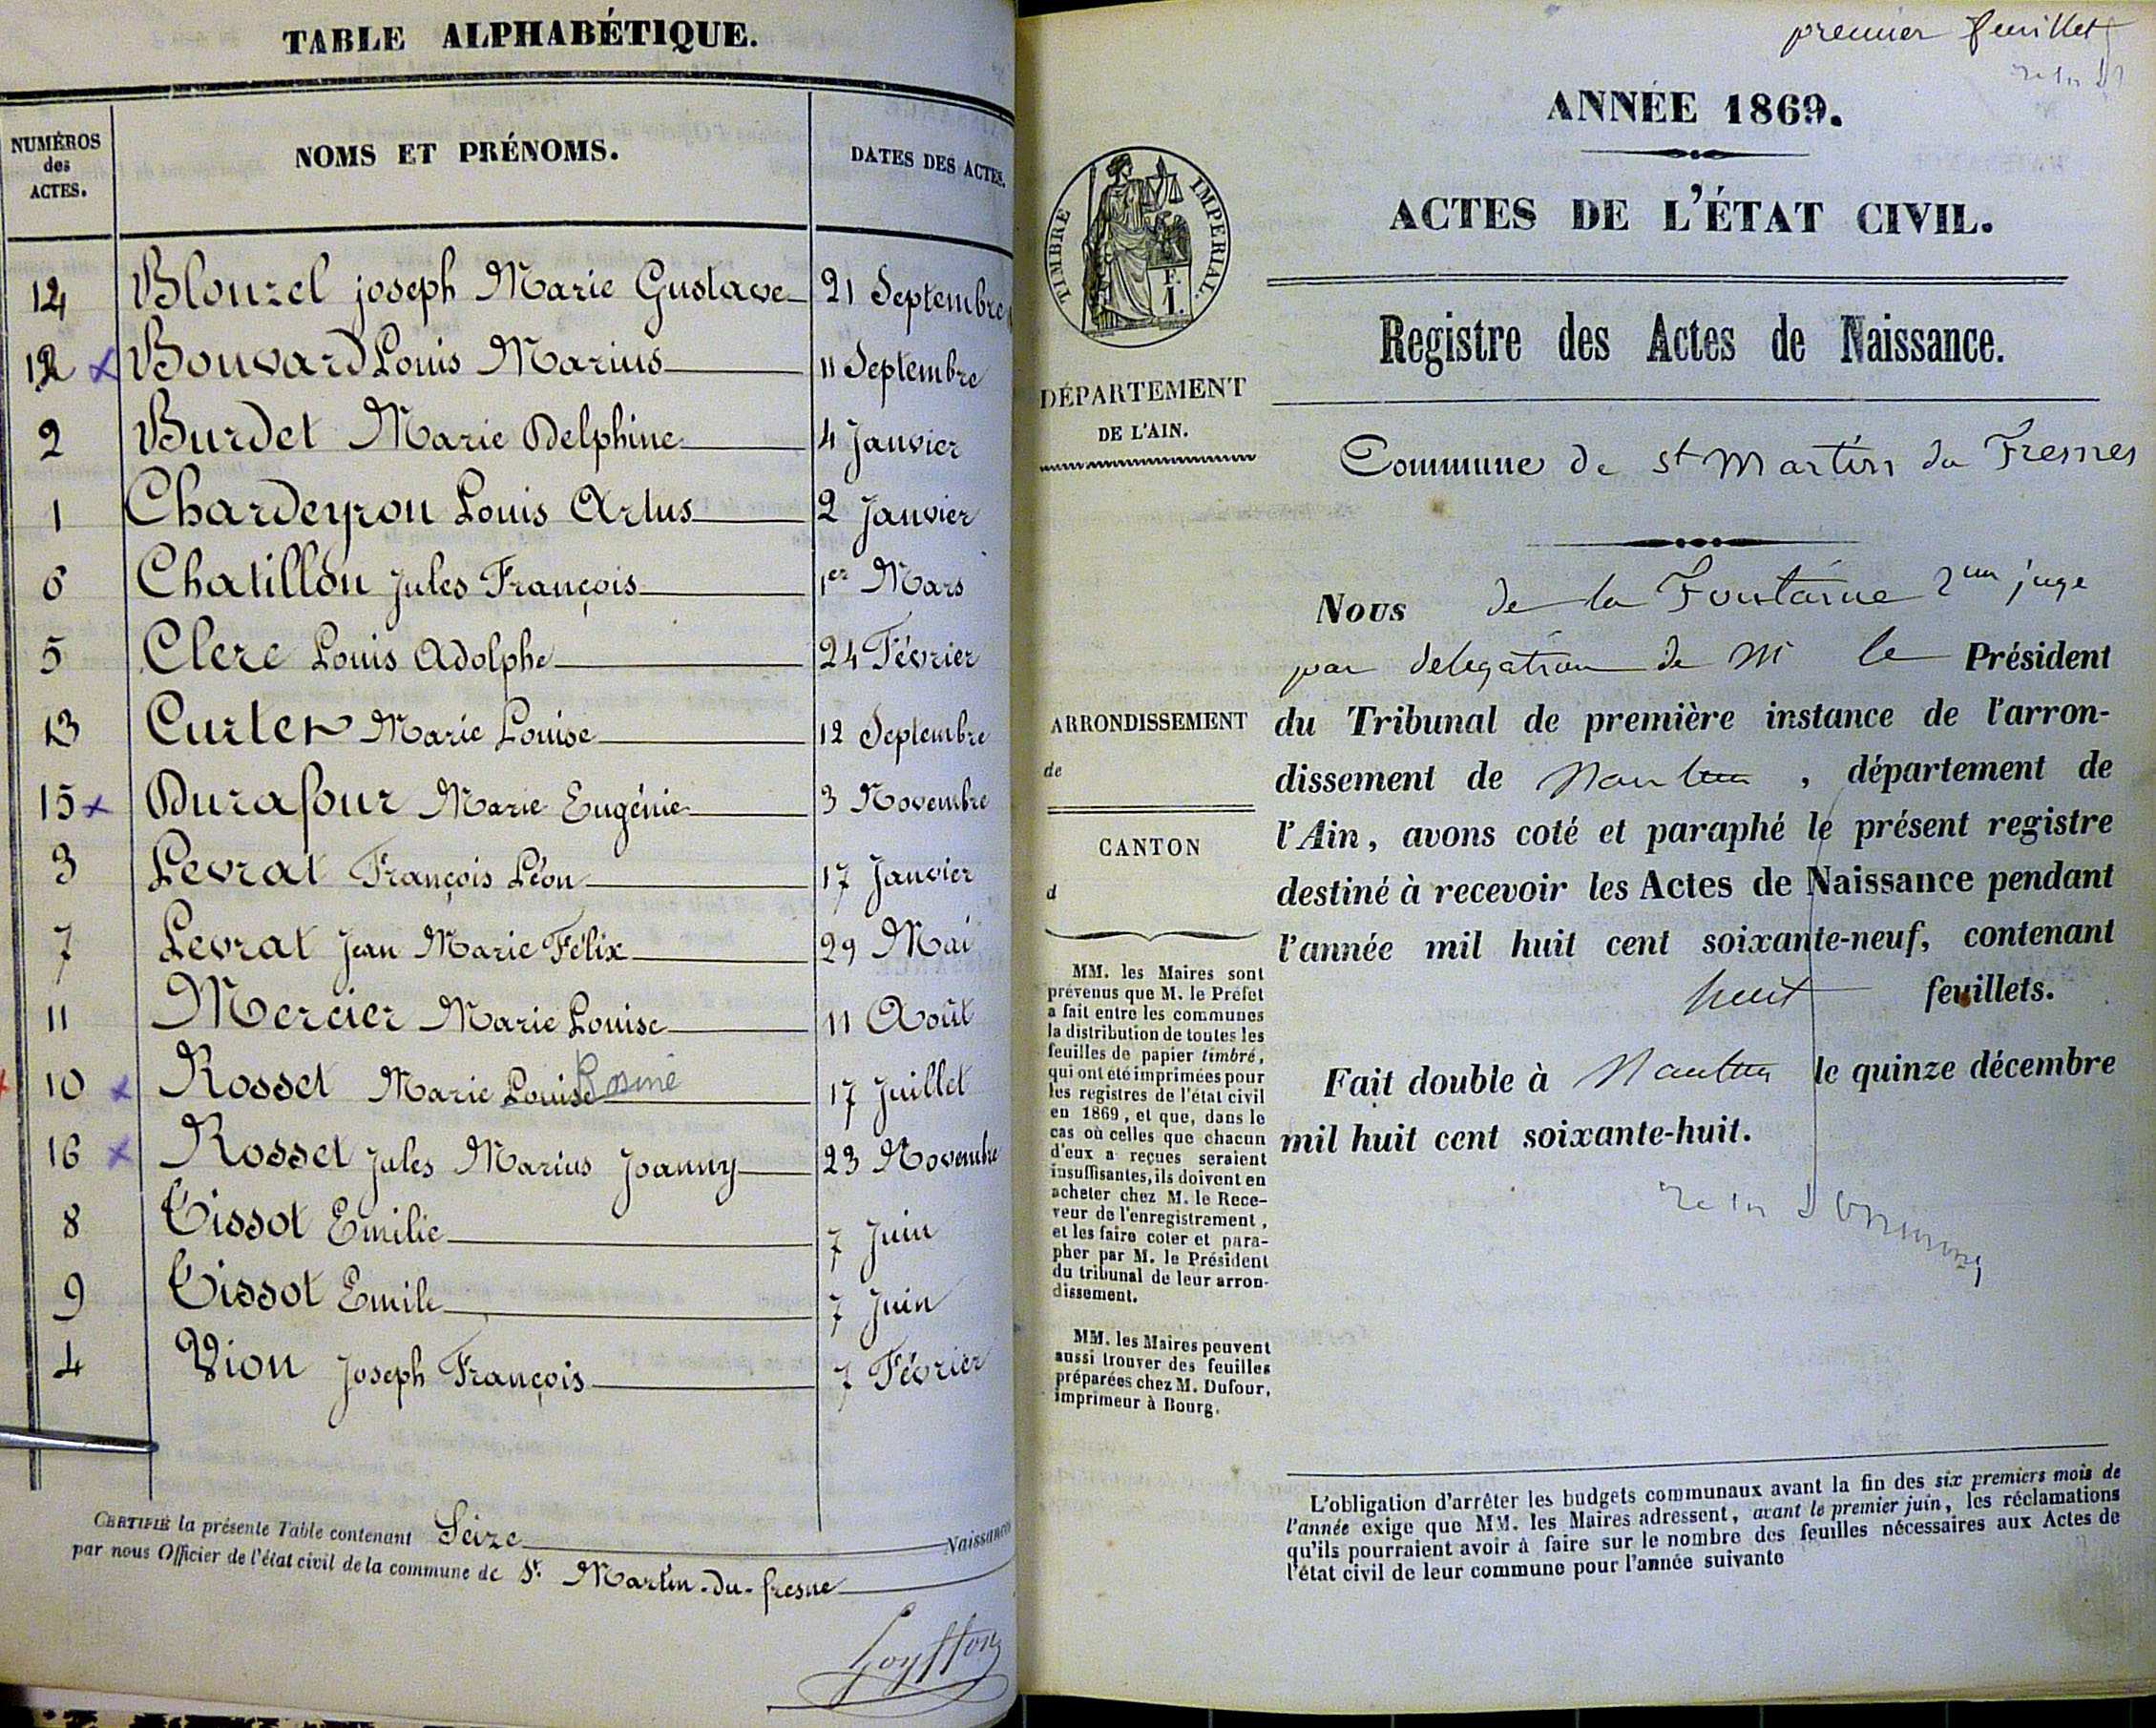 TABLE ALPHABÉTIQUE.
NUMÉROS des ACTES.
NOMS ET PRÉNOMS.
DATES DES ACTES.
14 Blonzel joseph Marie Gustave 21 Septembre
12 Bouvard Louis Marius 11 Septembre
2 Burdet Marie Delphine 4 Janvier
1 Chardeyron Louis Artus 2 Janvier
6 Chatillon Jules François 1er Mars
5 Clerc Louis Adolphe 24 Février
13 Curter Marie Louise 12 Septembre
15 Durafour Marie Eugénie 3 Novembre
3 Levrat François Léon 17 Janvier
7 Levrat Jean Marie Félix 29 Mai
11 Mercier Marie Louise 11 Août
10 Rosset Marie Louise Rosine 17 Juillet
16 Rosset Jules Marius Joanny 23 Novembre
8 Tissot Emilie 7 Juin
9 Tissot Emile 7 Juin
4 Vion Joseph François 7 Février
CERTIFIÉ la présente Table contenant Seize Naissances
par nous Officier de l'état civil de la commune de St. Martin-du-fresne
premier feuillet
ANNÉE 1869.
ACTES DE L'ÉTAT CIVIL.
TIMBRE IMPÉRIAL.
E.
I.
Registre des Actes de Naissance.
DÉPARTEMENT
DE L'AIN.
Commune de st Martin du Fresnes
Nous de la Fontaine 2me juge
par delegation de Mr le Président
du Tribunal de première instance de l'arron-
dissement de Nantua, département de
l'Ain, avons coté et paraphé le présent registre
destiné à recevoir les Actes de Naissance pendant
l'année mil huit cent soixante-neuf, contenant
huit feuillets.
Fait double à Nantua le quinze décembre
mil huit cent soixante-huit.
ARRONDISSEMENT
de
CANTON
d
MM. les Maires sont
prévenus que M. le Préfet
a fait entre les communes
la distribution de toutes les
feuilles de papier timbré,
qui ont été imprimées pour
les registres de l'état civil
en 1869, et que, dans le
cas où celles que chacun
d'eux a reçues seraient
insuffisantes, ils doivent en
acheter chez M. le Rece-
veur de l'enregistrement,
et les faire coter et para-
pher par M. le Président
du tribunal de leur arron-
dissement.
MM. les Maires peuvent
aussi trouver des feuilles
préparées chez M. Dufour,
imprimeur à Bourg.
L'obligation d'arrêter les budgets communaux avant la fin des six premiers mois de
l'année exige que MM. les Maires adressent, avant le premier juin, les réclamations
qu'ils pourraient avoir à faire sur le nombre des feuilles nécessaires aux Actes de
l'état civil de leur commune pour l'année suivante